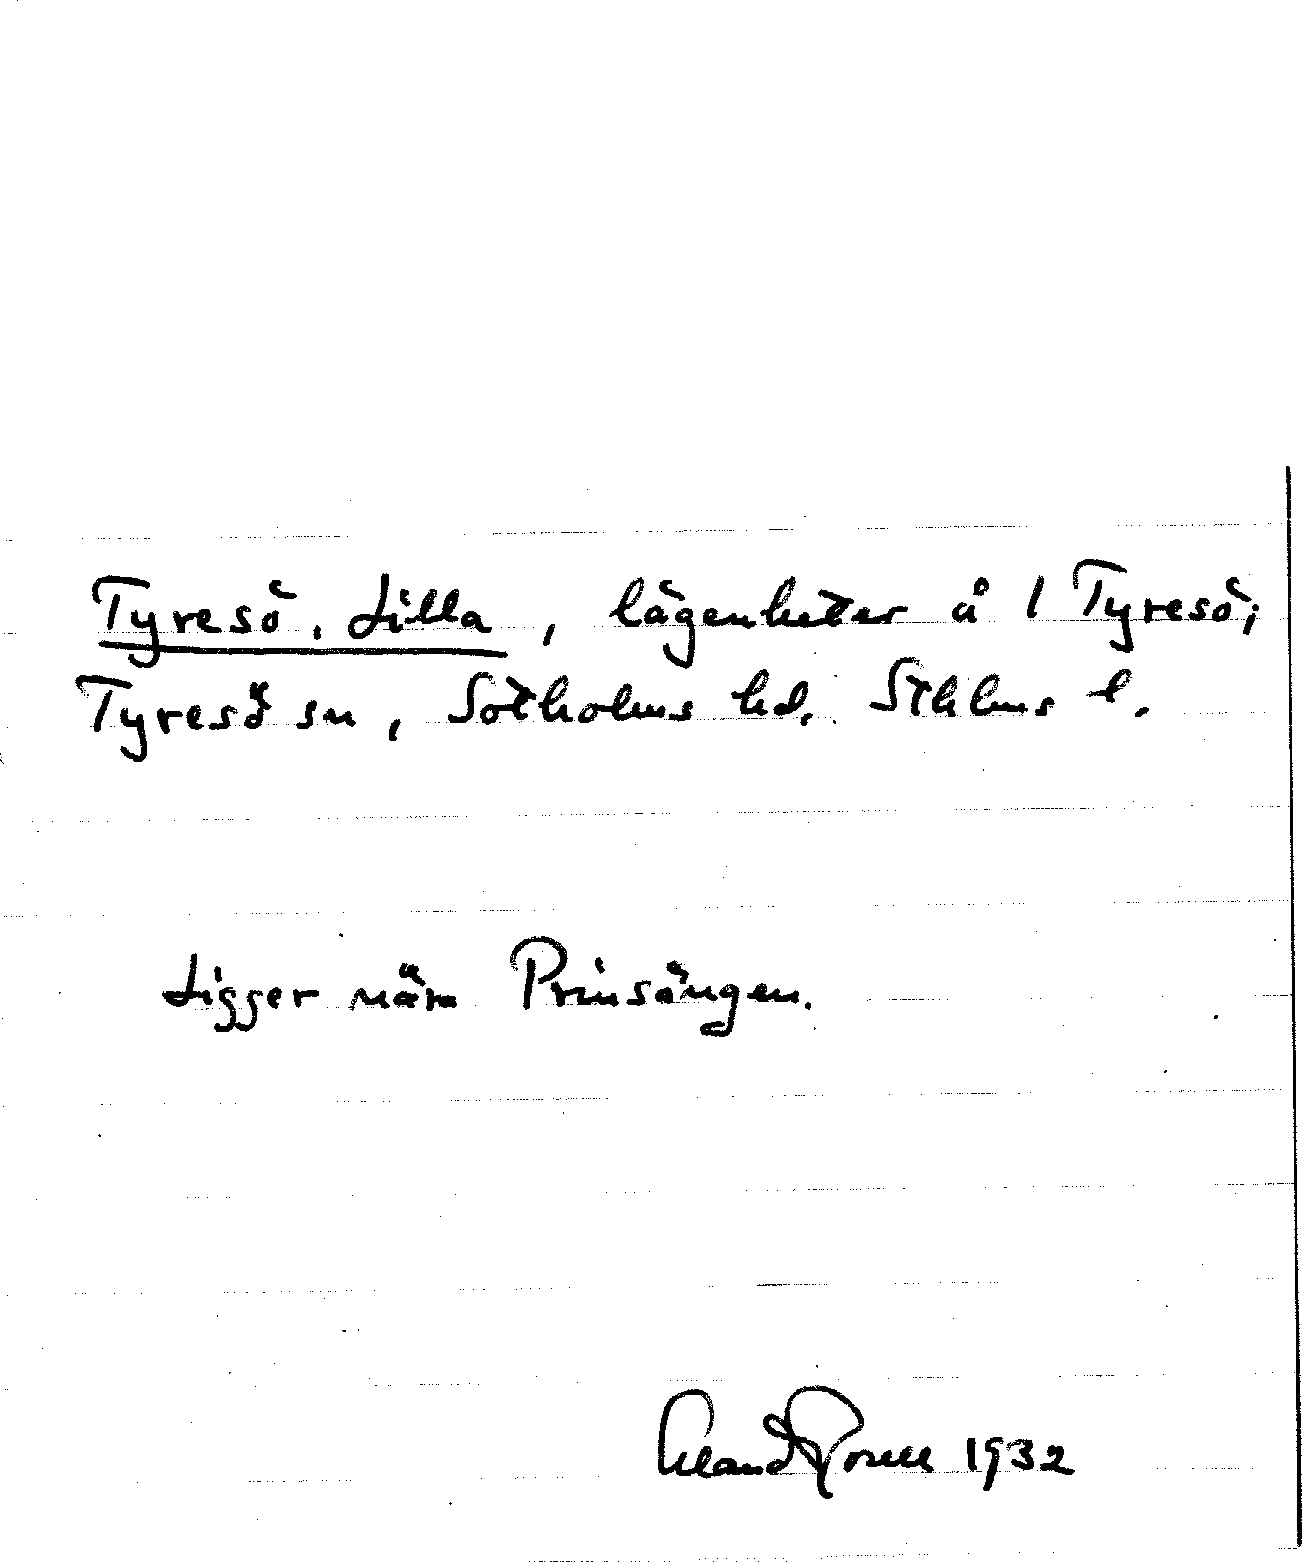 Tyresö, Lilla, lägenheter å 1 Tyresö;
Tyresö sn, Sotholms hd. Sthlms l.
Ligger nära Prinsängen.
1932